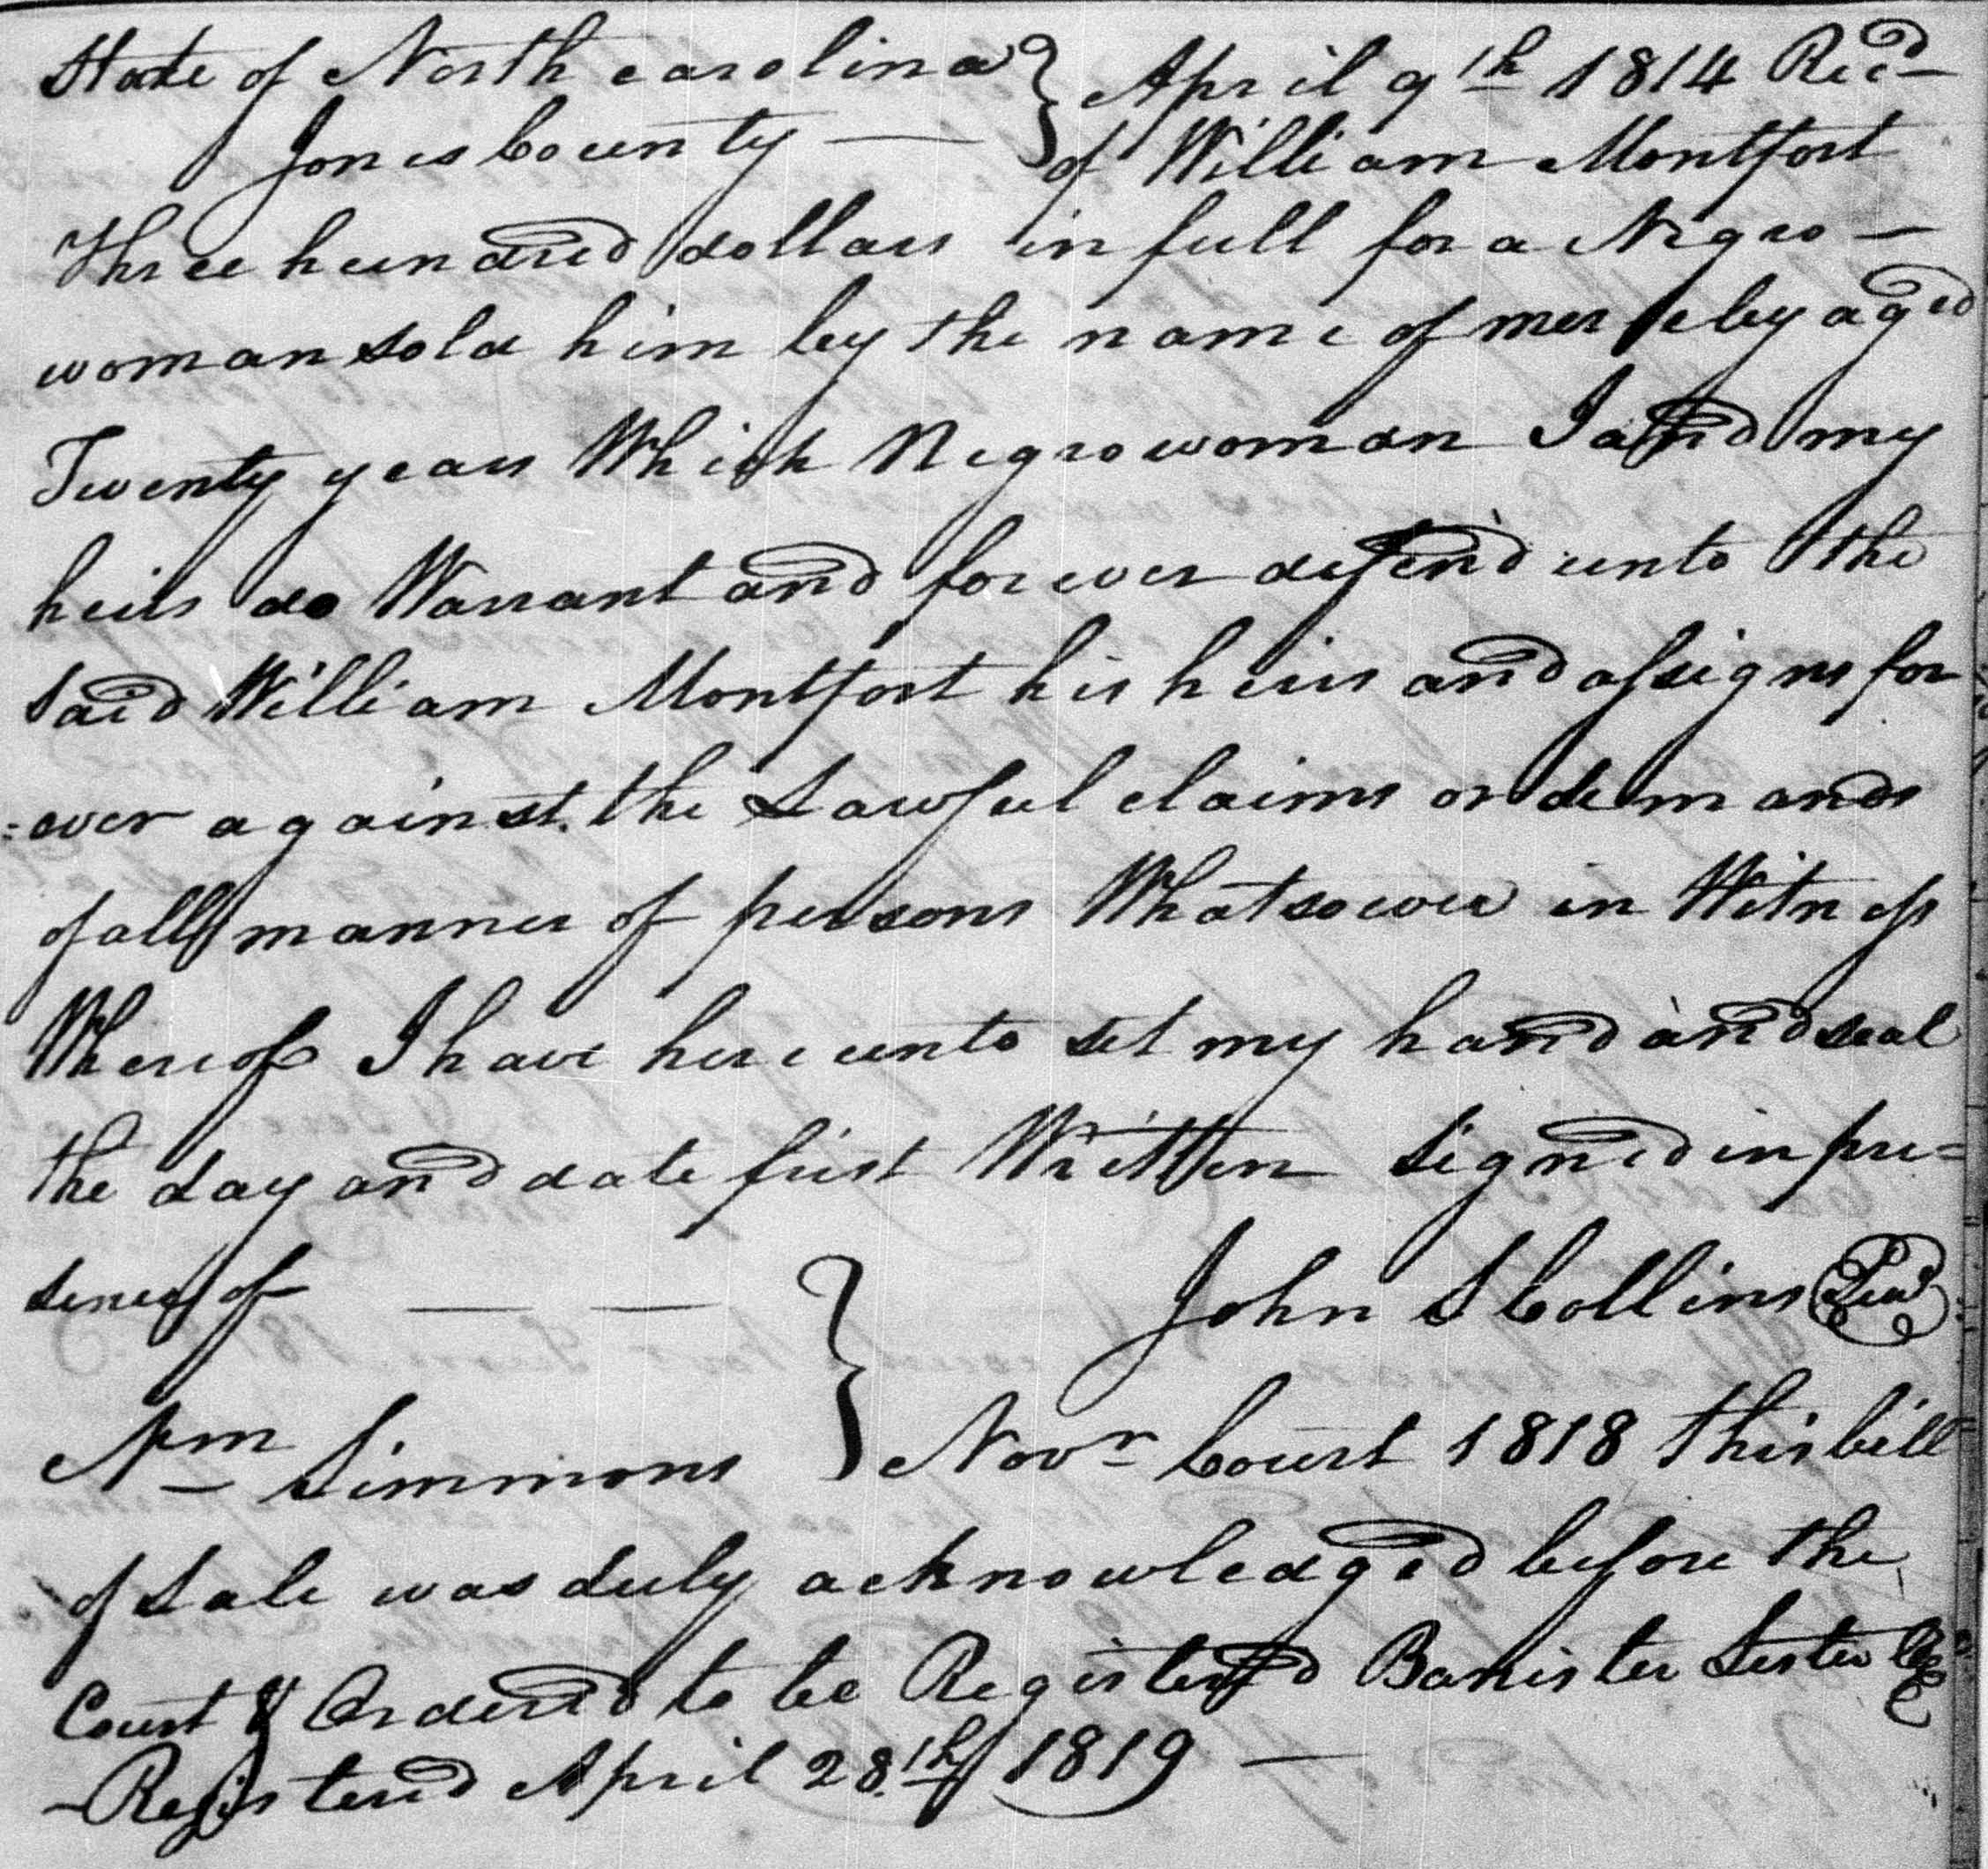 State of North carolina } April 9th 1814 Recd
Jones County — of William Montfort
Three hundred dollars in full for a Negro —
woman sold him by the name of aged
Twenty years Which Negro woman I and my
heirs do Warrant and forever defend unto the
Said William Montfort his heirs and assigns for
=ever against the Lawful claims or demands
of all manner of persons Whatsoever in Witness
Whereof I have hereunto set my hand and seal
the day and date first Written Signed in pre=
sence of — — } John S Collins Seal
Simmons } Novr Court 1818 this bill
of Sale was duly acknowledged before the
Court & Ordered to be Registered Banister Lester
— Registered April 28th 1819 —